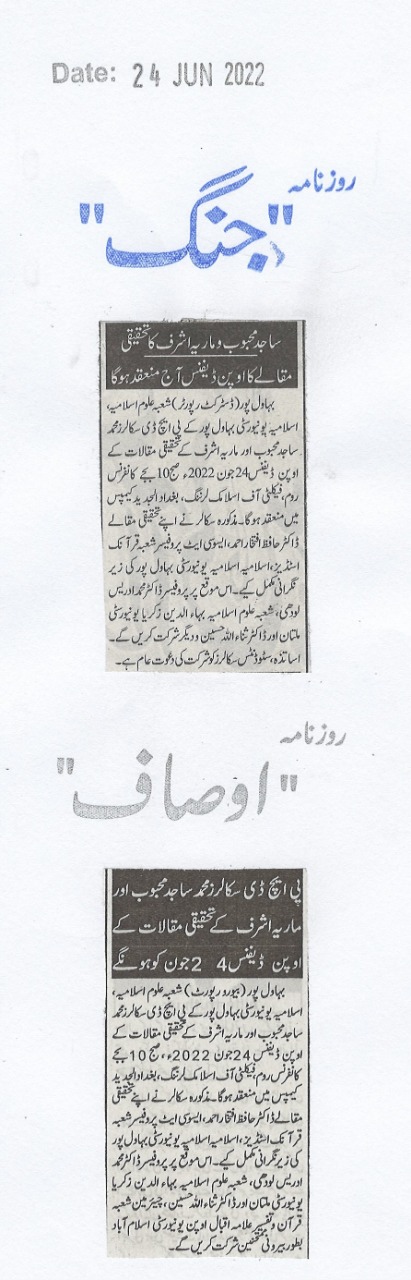 Date: 24 JUN 2022
روزنامہ
"جنگ"
ساجد محبوب و ماریہ اشرف کا تحقیقی
مقالے کا اوپن ڈیفنس آج منعقد ہوگا
بہاول پور (ڈسٹرکٹ رپورٹر) شعبہ علوم اسلامیہ،
اسلامیہ یونیورسٹی بہاول پور کے پی ایچ ڈی سکالرز محمد
ساجد محبوب اور ماریہ اشرف کے تحقیقی مقالات کے
اوپن ڈیفنس 24 جون 2022ء صبح 10 بجے کانفرنس
روم، فیکلٹی آف اسلامک لرننگ، بغداد الجدید کیمپس
میں منعقد ہوگا۔ مذکورہ سکالر نے اپنے تحقیقی مقالے
ڈاکٹر حافظ افتخار احمد، ایسوسی ایٹ پروفیسر شعبہ قرآنک
اسٹڈیز، اسلامیہ اسلامیہ یونیورسٹی بہاول پور کی زیر
نگرانی مکمل کیے۔ اس موقع پر پروفیسر ڈاکٹر محمد ادریس
لودھی، شعبہ علوم اسلامیہ بہاء الدین زکریا یونیورسٹی
ملتان اور ڈاکٹر ثناء اللہ حسین و دیگر شرکت کریں گے۔
اساتذہ، سٹوڈنٹس سکالرز کو شرکت کی دعوت عام ہے۔
روزنامہ
"اوصاف"
پی ایچ ڈی سکالرز محمد ساجد محبوب اور
ماریہ اشرف کے تحقیقی مقالات کے
اوپن ڈیفنس 4 2 جون کو ہونگے
بہاول پور (بیورو رپورٹ) شعبہ علوم اسلامیہ،
اسلامیہ یونیورسٹی بہاول پور کے پی ایچ ڈی سکالرز محمد
ساجد محبوب اور ماریہ اشرف کے تحقیقی مقالات کے
اوپن ڈیفنس 24 جون 2022ء، صبح 10 بجے
کانفرنس روم، فیکلٹی آف اسلامک لرننگ، بغداد الجدید
کیمپس میں منعقد ہوگا۔ مذکورہ سکالر نے اپنے تحقیقی
مقالے ڈاکٹر حافظ افتخار احمد، ایسوسی ایٹ پروفیسر شعبہ
قرآنک اسٹڈیز، اسلامیہ اسلامیہ یونیورسٹی بہاول پور
کی زیر نگرانی مکمل کیے۔ اس موقع پر پروفیسر ڈاکٹر محمد
ادریس لودھی، شعبہ علوم اسلامیہ بہاء الدین زکریا
یونیورسٹی ملتان اور ڈاکٹر ثناء اللہ حسین، چیئرمین شعبہ
قرآن و تفسیر علامہ اقبال اوپن یونیورسٹی اسلام آباد
بطور بیرونی ممتحنین شرکت کریں گے۔